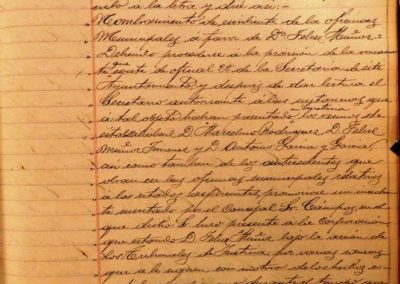 cribo á la letra y dice así:-
Nombramiento de escribiente de la oficinas
Municipales á favor de Dn Felix Muñoz.=
Debiendo procederse á la provisión de la vacan
te que existe de oficial 2º de la Secretaría de este
Ayuntamiento, y despues de dar lectura el
Secretario autorizante á las instancias que
á tal objeto habian presentado los vecinos de
esta localidad D. Marcelino Rodríguez D. Felix
Muñoz Jimenez y D. Antonio Garcia y Garcia,
así como tambien de los antecedentes que
obran en las oficinas municipales relativos
á los citados aspirantes, promoviose un
suscitado por el Concejal Sr. Campos, en el
que dicho Sr. hizo presente á la Corporación
que estando D. Felix Muñoz bajo la acción de
los Tribunales de Justicia por varias causas
que se le siguen con motivo de los hechos